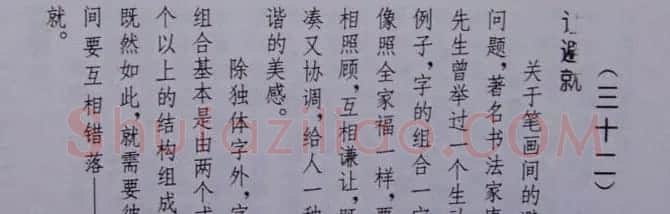 （三十二）
让避就
关于笔画间的避
问题，著名书法家唐
先生曾举过一个生动
例子，字的组合一定
像照全家福一样，要
相照顾，互相谦让，既
凑又协调，给人一种
谐的美感。
除独体字外，字
组合基本是由两个或
个以上的结构组成
既然如此，就需要彼
间要互相错落——
就。
Shufaziliao.com